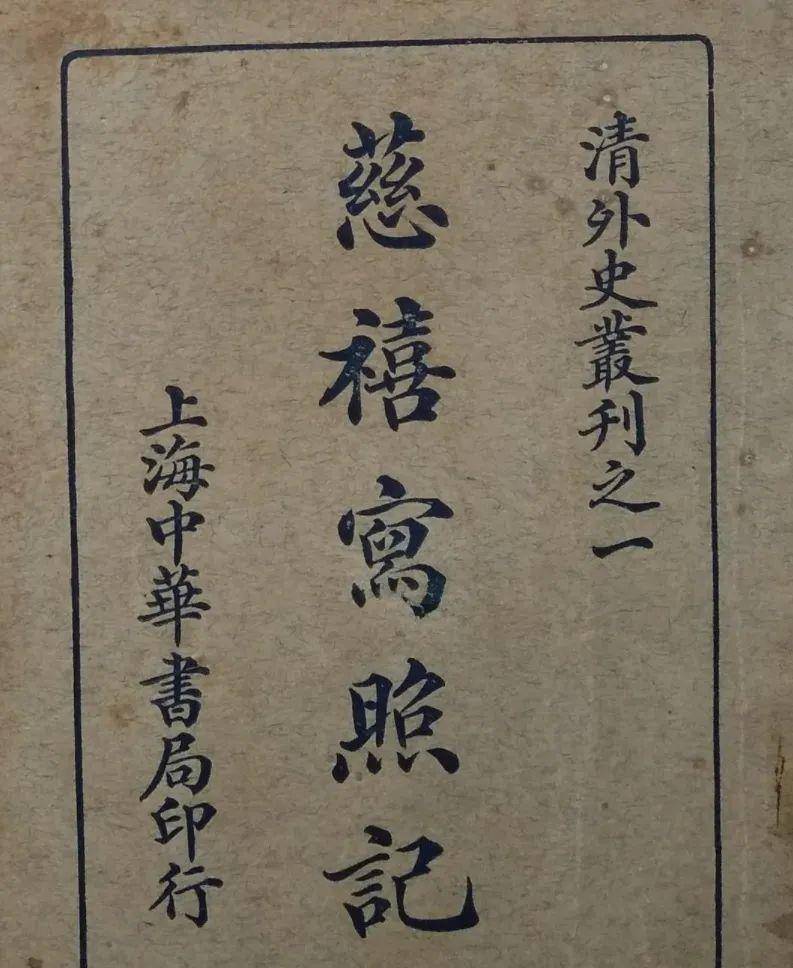 清外史叢刊之一
慈禧寫照記
上海中華書局印行